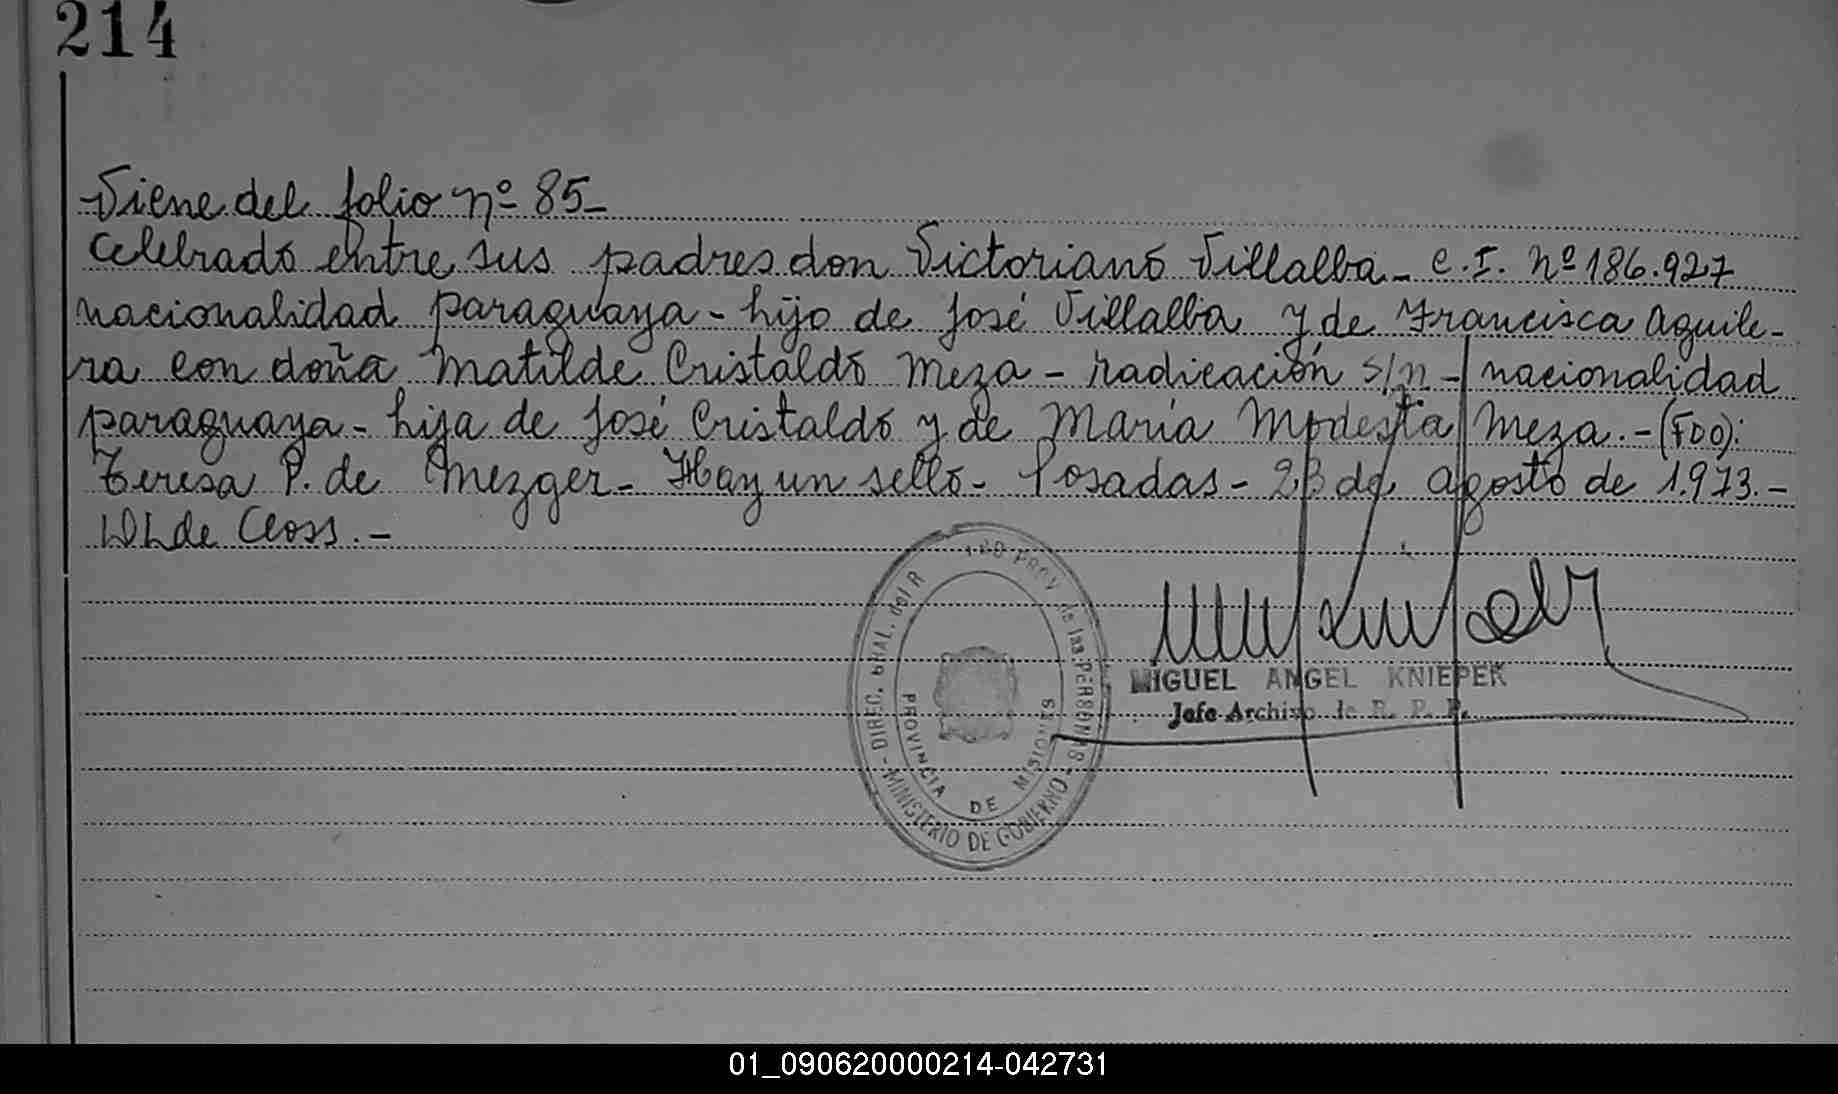 214
Viene del folio nº 85-
Celebrado entre sus padres don Victoriano Villalba - C.I. Nº 186.927
nacionalidad paraguaya - hijo de José Villalba y de Francisca Aguile-
ra con doña Matilde Cristaldo Meza - radicación s/n - nacionalidad
paraguaya - hija de José Cristaldo y de María Modesta Meza.- (FDO):
Teresa P. de Mezger - Hay un sello - Posadas - 23 de agosto de 1.973.-
de Closs.-
DIREC. GRAL. del R PROV. de las PERSONAS
- MINISTERIO DE GOBIERNO -
PROVINCIA DE MISIONES
MIGUEL ANGEL KNIEPER
Jefe Archivo de R. P. P.
01_090620000214-042731